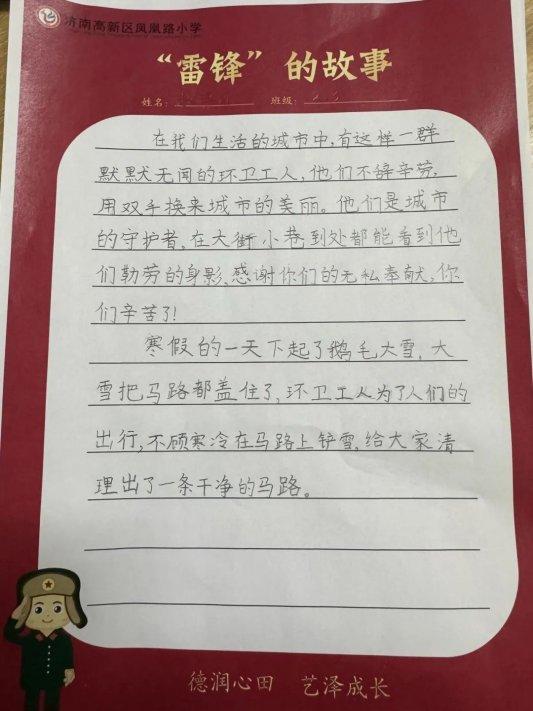 济南高新区凤凰路小学
“雷锋”的故事
姓名： 班级：
在我们生活的城市中，有这样一群
默默无闻的环卫工人，他们不辞辛劳，
用双手换来城市的美丽。他们是城市
的守护者，在大街小巷到处都能看到他
们勤劳的身影，感谢你们的无私奉献，你
们辛苦了！
寒假的一天下起了鹅毛大雪，大
雪把马路都盖住了，环卫工人为了人们的
出行，不顾寒冷在马路上铲雪，给大家清
理出了一条干净的马路。
德润心田 艺泽成长